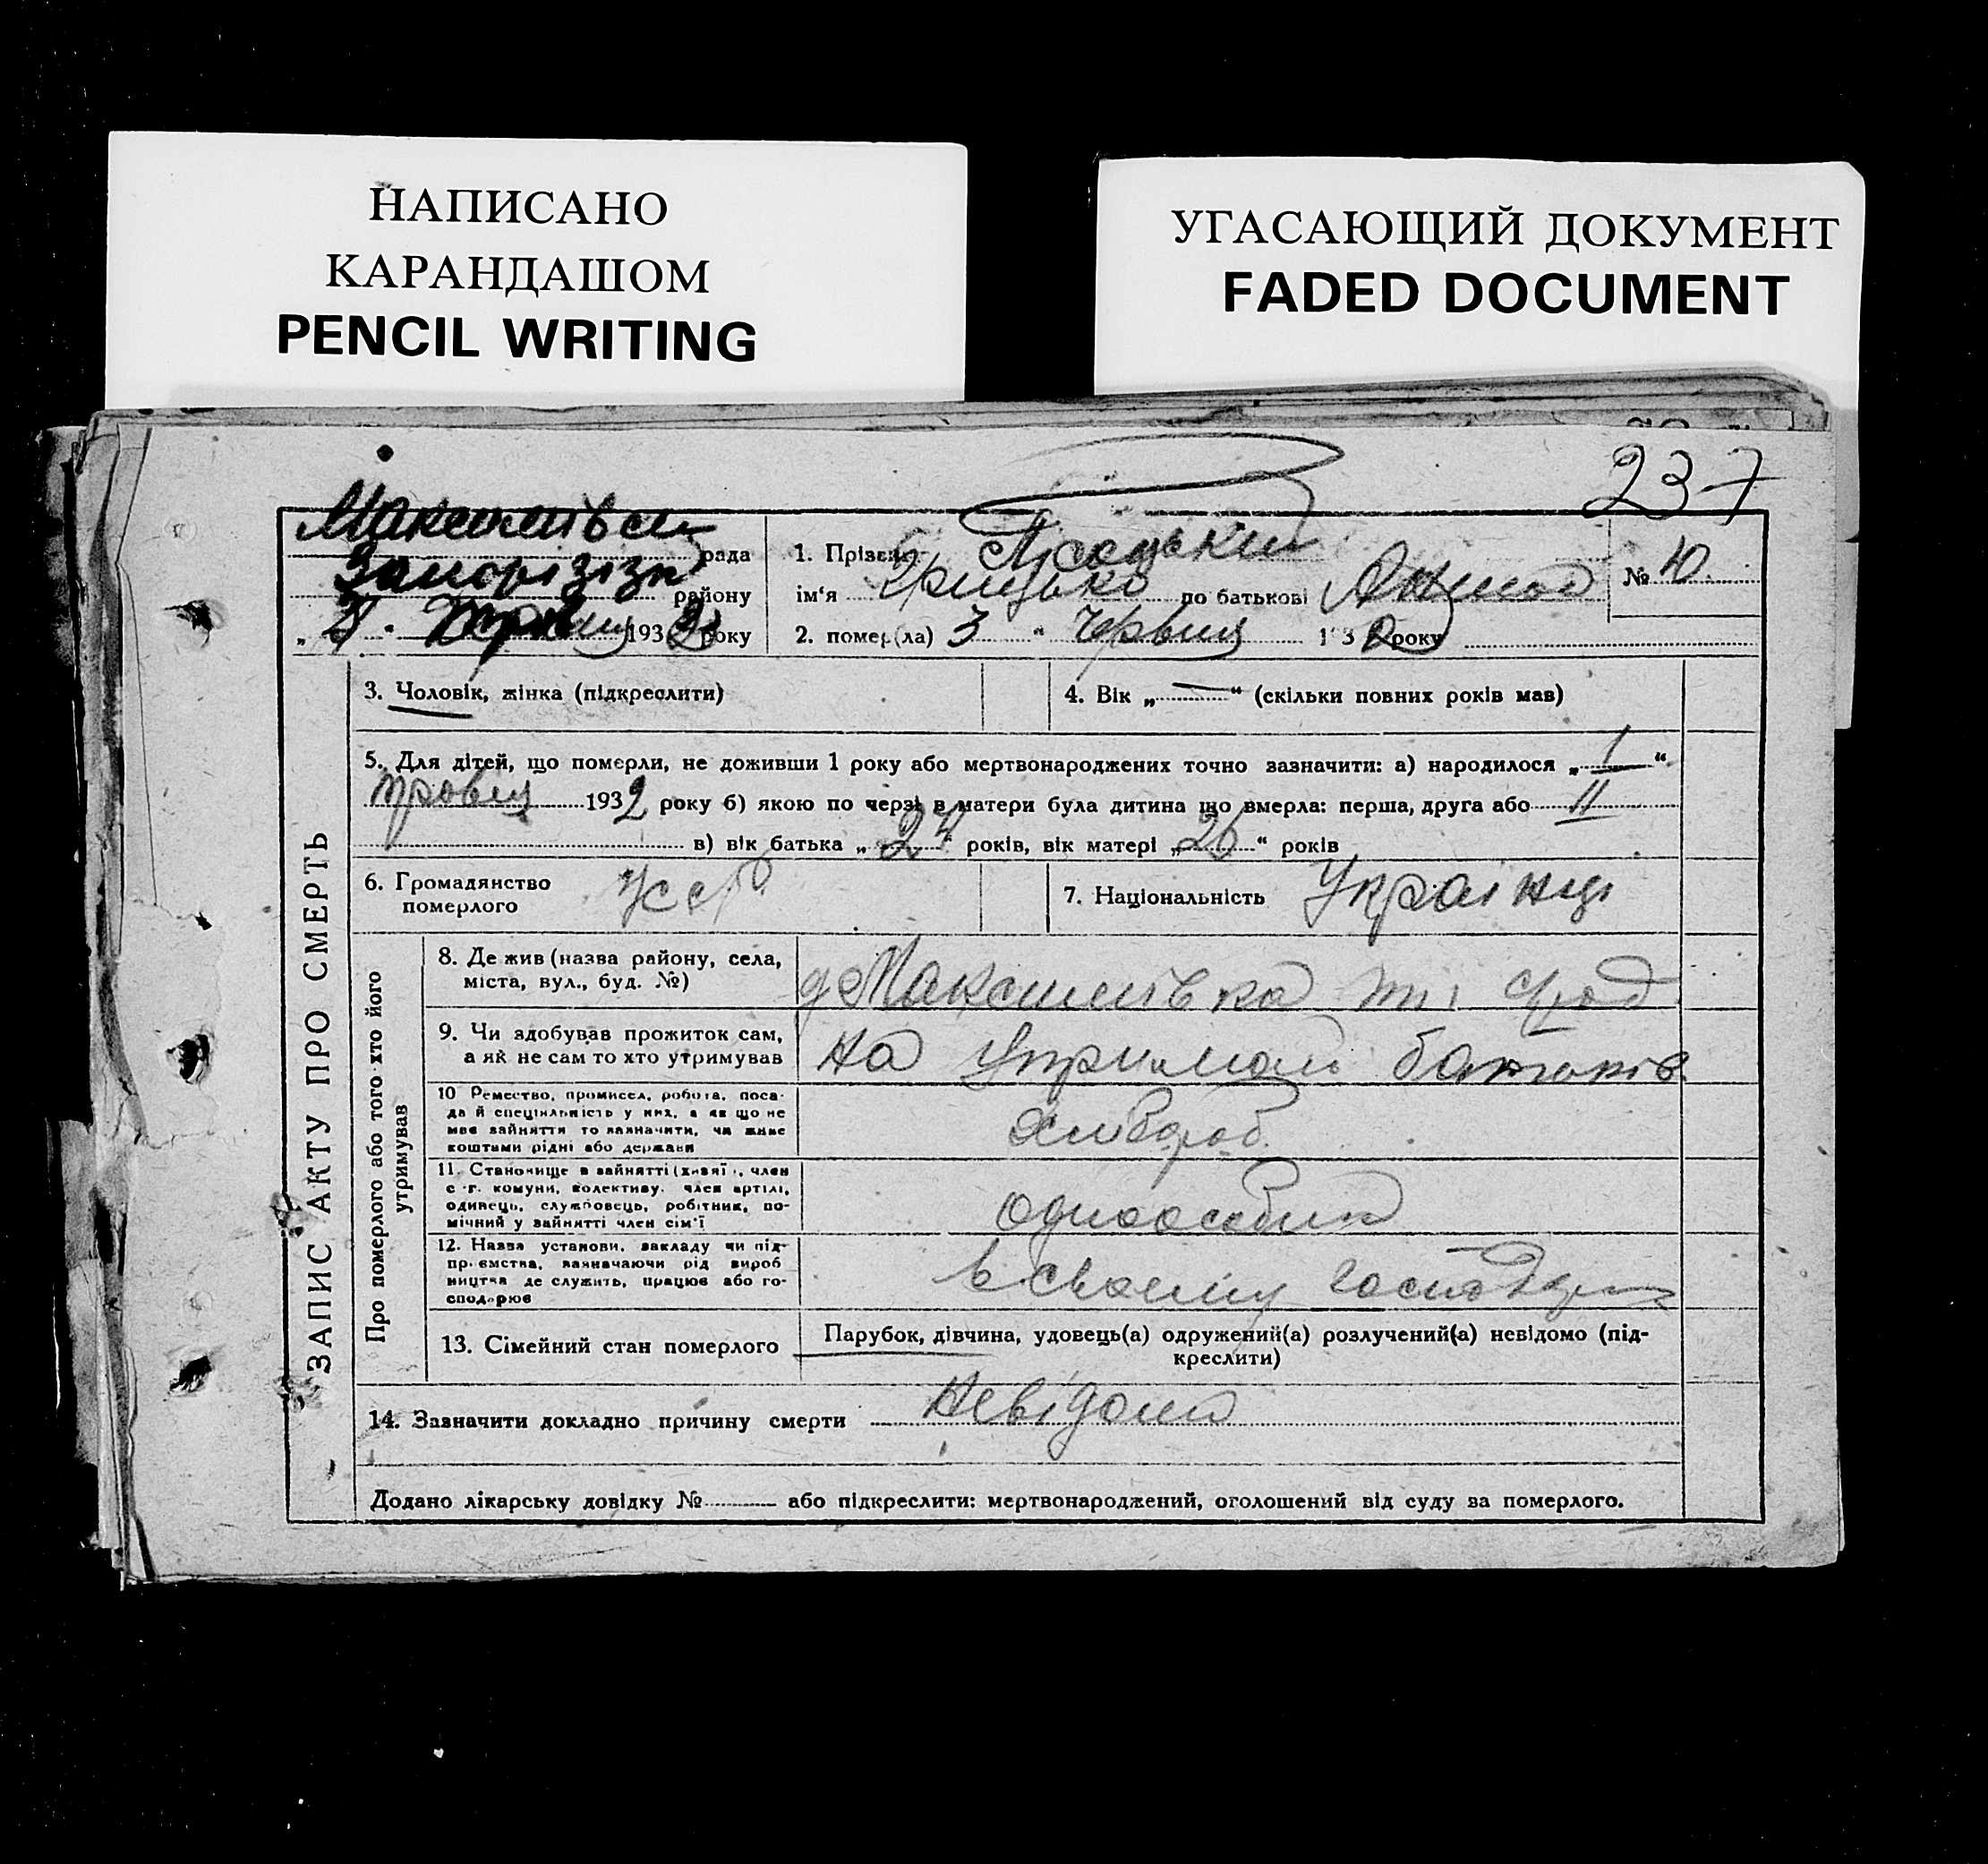 НАПИСАНО
КАРАНДАШОМ
PENCIL WRITING
УГАСАЮЩИЙ ДОКУМЕНТ
FADED DOCUMENT
237
ЗАПИС АКТУ ПРО СМЕРТЬ
рада
району
193 року
1. Прізвищ
ім‘я Грицько по батькові
№ 10.
2. помер(ла) 3 “ Червня 1932 року
3. Чоловік, жінка (підкреслити)
4. Вік „—“ (скільки повних років мав)
5. Для дітей, що померли, не доживши 1 року або мертвонароджених точно зазначити: а) народилося „1“
1932 року б) якою по черзі в матери була дитина що вмерла: перша, друга або II
в) вік батька „27“ років, вік матері „26“ років
6. Громадянство
померлого
УССР
7. Національність Українці
Про померлого або того хто його
утримував
8. Де жив (назва району, села,
міста, вул., буд. №)
Максимівка
9. Чи здобував прожиток сам,
а як не сам то хто утримував
на утриман батьків
10 Ремество, промисел, робота, поса-
да й спеціяльність у них, а як що не
має зайняття то зазначити, чи живе
коштами рідні або держави
Хлібороб
11. Становище в зайнятті (хазяї, член
с.-г. комуни, колективу, член артілі,
одинець, службовець, робітник, по-
мічний у зайнятті член сім‘ї
одноосібник
12. Назва установи, закладу чи під-
приємства, зазначаючи рід вироб
ництва де служить, працює або го-
сподарює
в своєму господар
13. Сімейний стан померлого
Парубок, дівчина, удовець(а) одружений(а) розлучений(а) невідомо (під-
креслити)
14. Зазначити докладно причину смерти невідома
Додано лікарську довідку № або підкреслити: мертвонароджений, оголошений від суду за померлого.